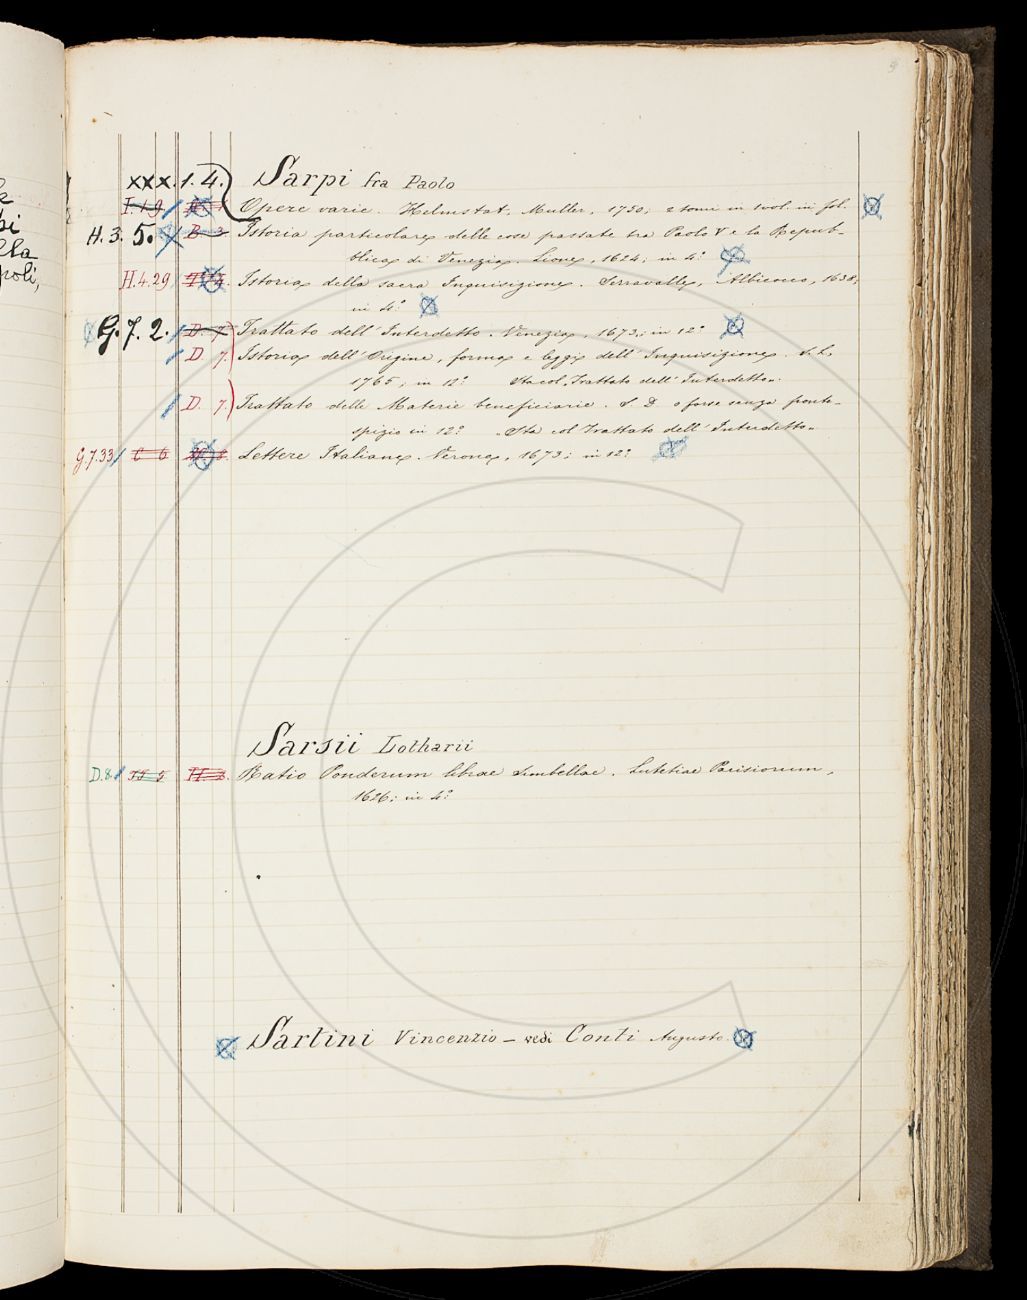 bi
lla
poli,
XXX. 1. 4. Sarpi fra Paolo
I. 19. Opere varie. Helmstat, Muller, 1750; 2 tomi in 1 vol. in fol.
H. 3. 5. B 3. Istoria particolare delle cose passate tra Paolo V e la Repub-
blica di Venezia. Lione, 1624; in 4º
H.4.29 Istoria della sacra Inquisizione. Serravalle, Albicocco, 1638;
in 4º
G. 7. 2. D. 7. Trattato dell'Interdetto. Venezia, 1673; in 12º
D. 7. Istoria dell'Origine, forma e leggi dell'Inquisizione. S. L.
1765; in 12º Sta col "Trattato dell'Interdetto".
D. 7. Trattato delle Materie beneficiarie. S. D. o forse senza fronte-
spizio in 12º "Sta col Trattato dell'Interdetto"
G.7.33 C 6 Lettere Italiane. Verona, 1673; in 12º
Sarsii Lotharii
D.8. II 5 II 3. Ratio Ponderum librae Simbellae. Lutetiae Parisiorum,
1626; in 4º
Sartini Vincenzio – vedi Conti Augusto.